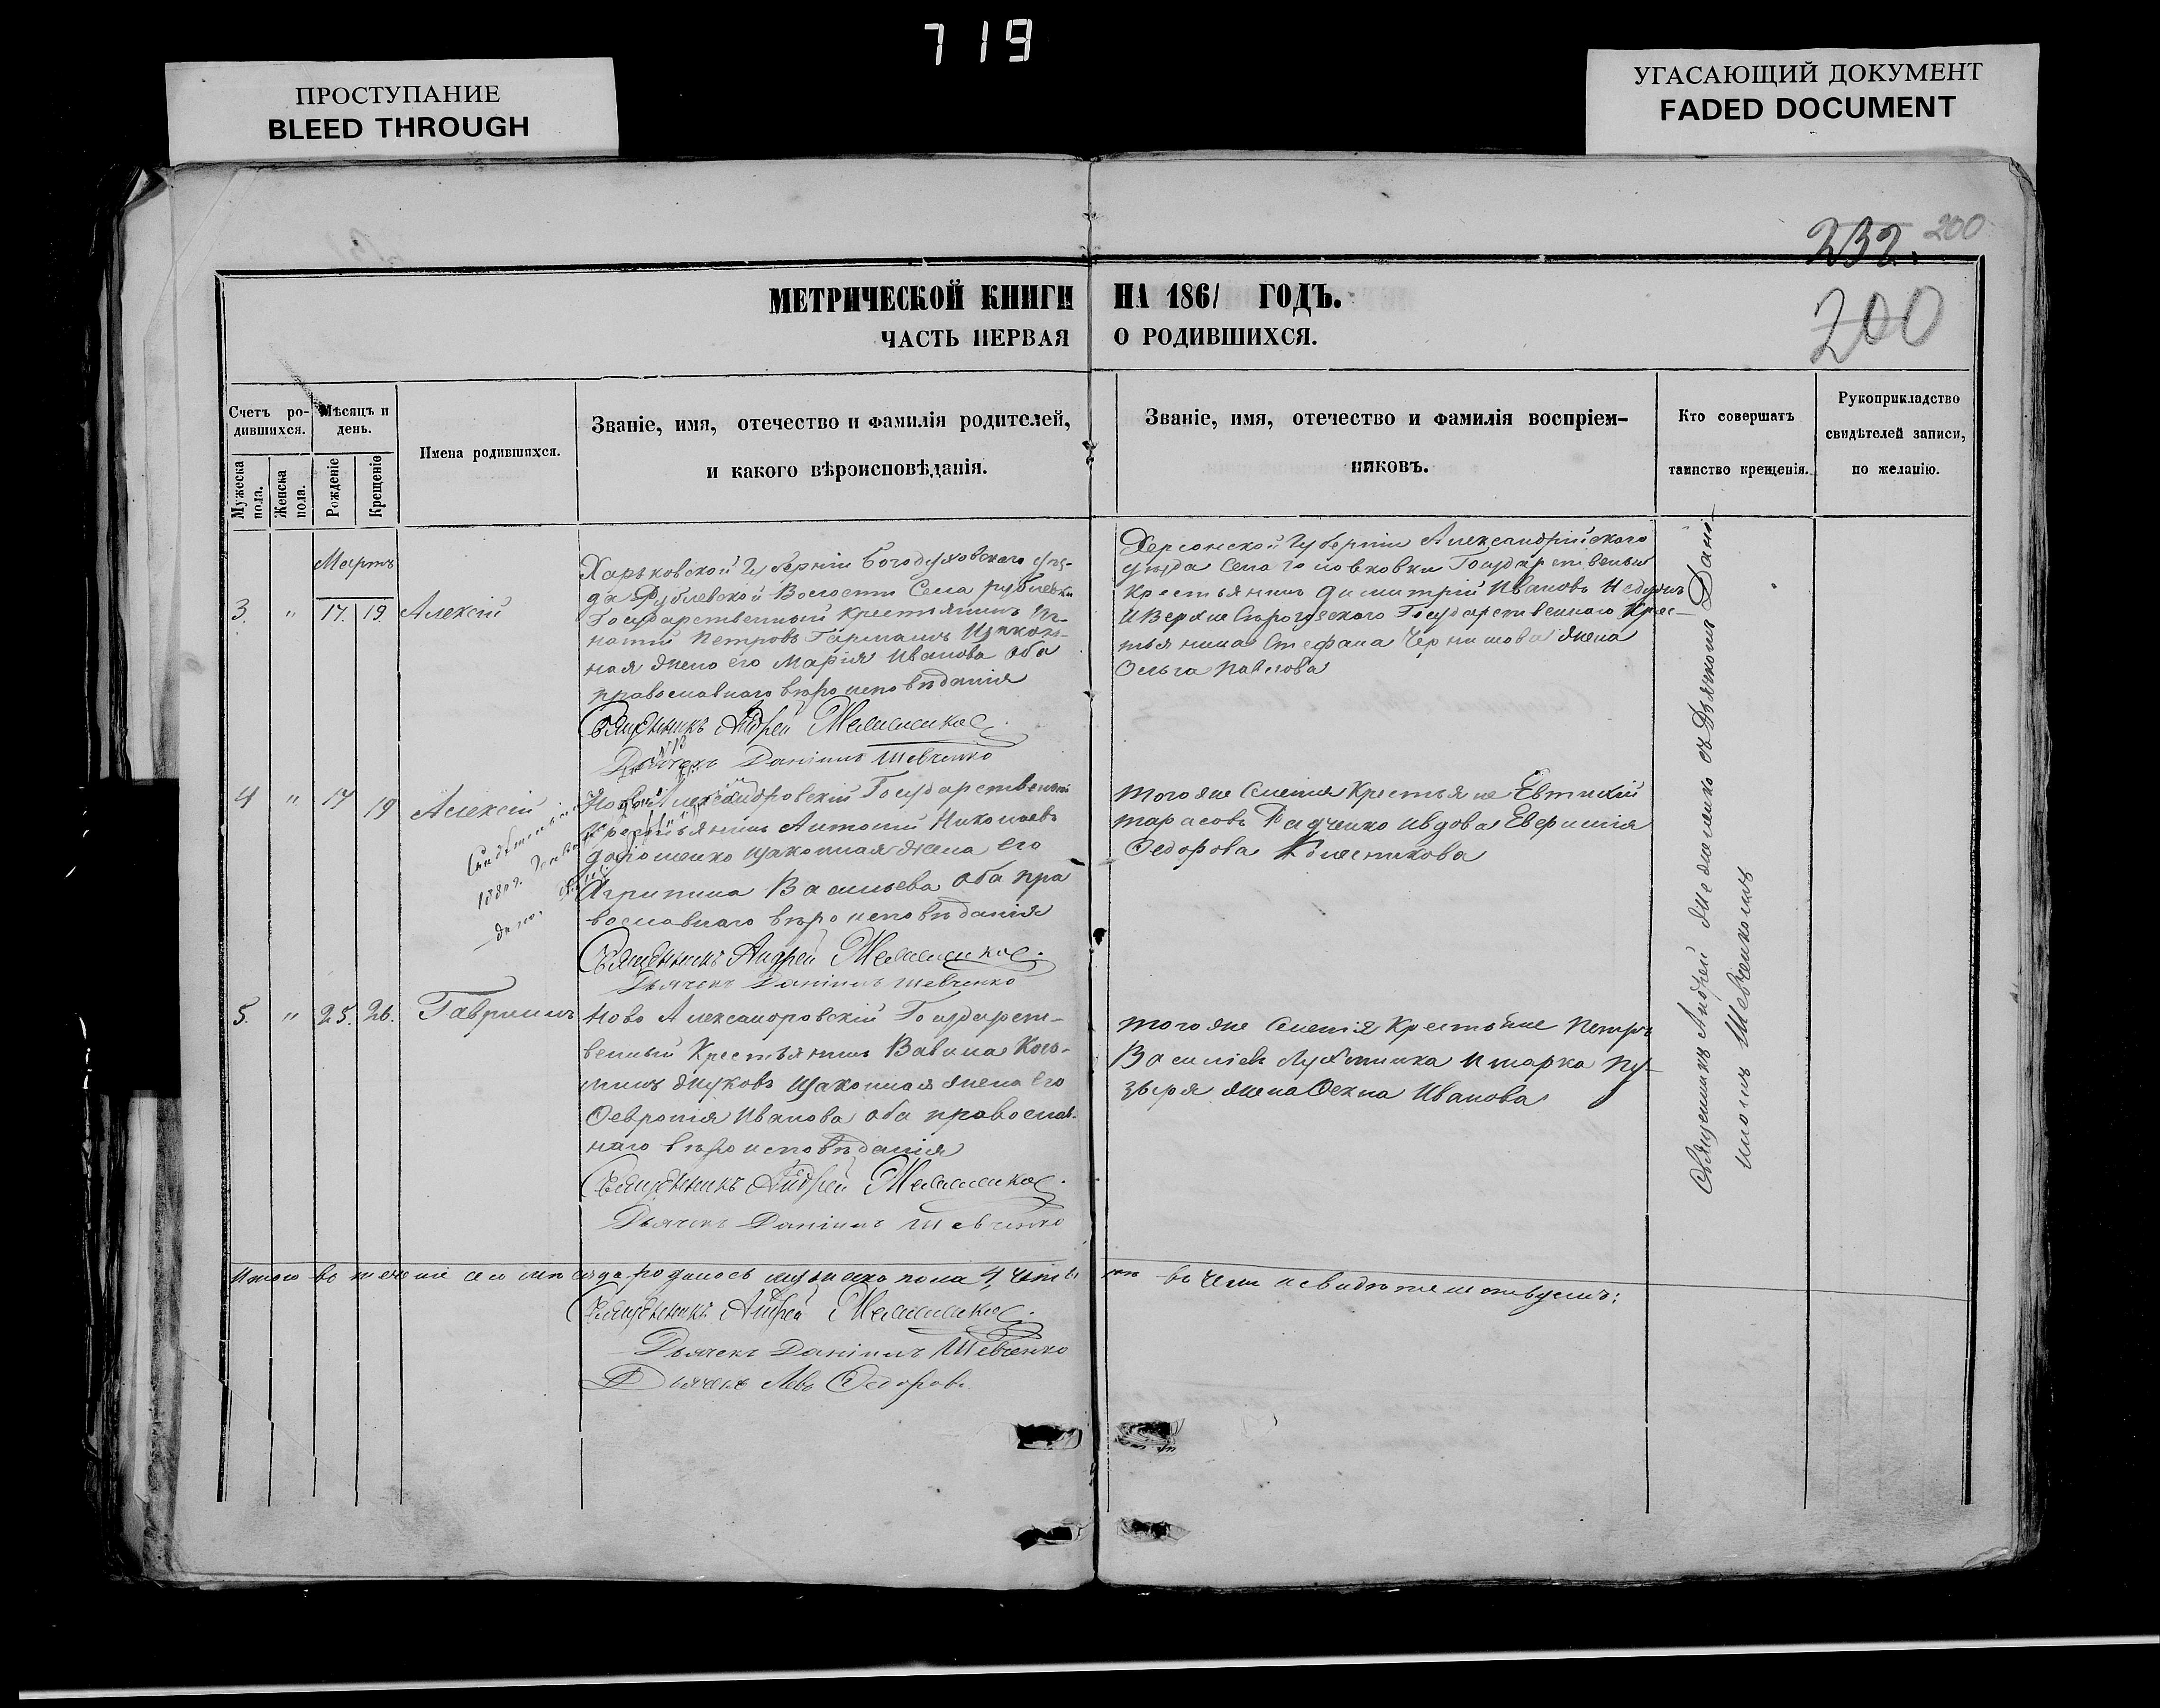 719
ПРОСТУПАНИЕ
BLEED THROUGH
УГАСАЮЩИЙ ДОКУМЕНТ
FADED DOCUMENT
232. 200
200
МЕТРИЧЕСКОЙ КНИГИ НА 1861 ГОДЪ.
ЧАСТЬ ПЕРВАЯ О РОДИВШИХСЯ.
Счетъ ро-
дившихся.
Мужеска пола.
Женска пола.
Мѣсяцъ и
день.
Рожденіе
Крещеніе
Имена родившихся.
Званіе, имя, отечество и фамилія родителей,
и какого вѣроисповѣданія.
Званіе, имя, отечество и фамилія воспріем-
никовъ.
Кто совершатъ
таинство крещенія.
Рукоприкладство
свидѣтелей записи,
по желанію.
Мартъ
3. " 17. 19. Алексій
Харьковской Губерніи Богодуховскаго уѣз-
да Рублевской Волости Села рублевки
Государственный крестьянинъ Иг-
натій Петровъ Гармашъ Изакон-
ная жена его Марія Иванова оба
православнаго вѣроисповѣданія
Священникъ Андрей
Дьячекъ Даніилъ Шевченко
Херсонской Губерніи Александрійскаго
уѣзда Села Государственый
Крестьянинъ Димитрій Ивановъ
Государственнаго Крес-
тьянина Стефана жена
Ольга Павлова
4 " 17 19 Алексій
1880 г.
Ново Александровскій Государственый
Крестьянинъ Антоній Николаевъ
изаконная жена его
Агрипина Васильева оба пра
вославнаго вѣроисповѣданія
Священникъ Андрей
Дьячекъ Даніилъ Шевченко
тогоже Селенія Крестьяне Евтихій
тарасовъ ивдова
Федорова
5. " 25. 26. Гавріилъ
Ново Александровскій Государст-
венный Крестьянинъ Вавила Козь-
минъ Жуковъ изаконная жена его
Февронія Иванова оба православ-
наго вѣроисповѣданія
Священникъ Андрей
Дьячекъ Даніилъ Шевченко
тогоже Селенія Крестьяне Петръ
Василіев и марка Пу-
зыря жена Иванова
Священникъ Андрей съ Дьячкомъ Дані-
иломъ Шевченкомъ
Итого во теченіе сего родилось мужеска пола 4, въ чемъ и свидѣтельствуемъ:
Священникъ Андрей
Дьячекъ Даніилъ Шевченко
Дьячекъ Левъ Федоровъ